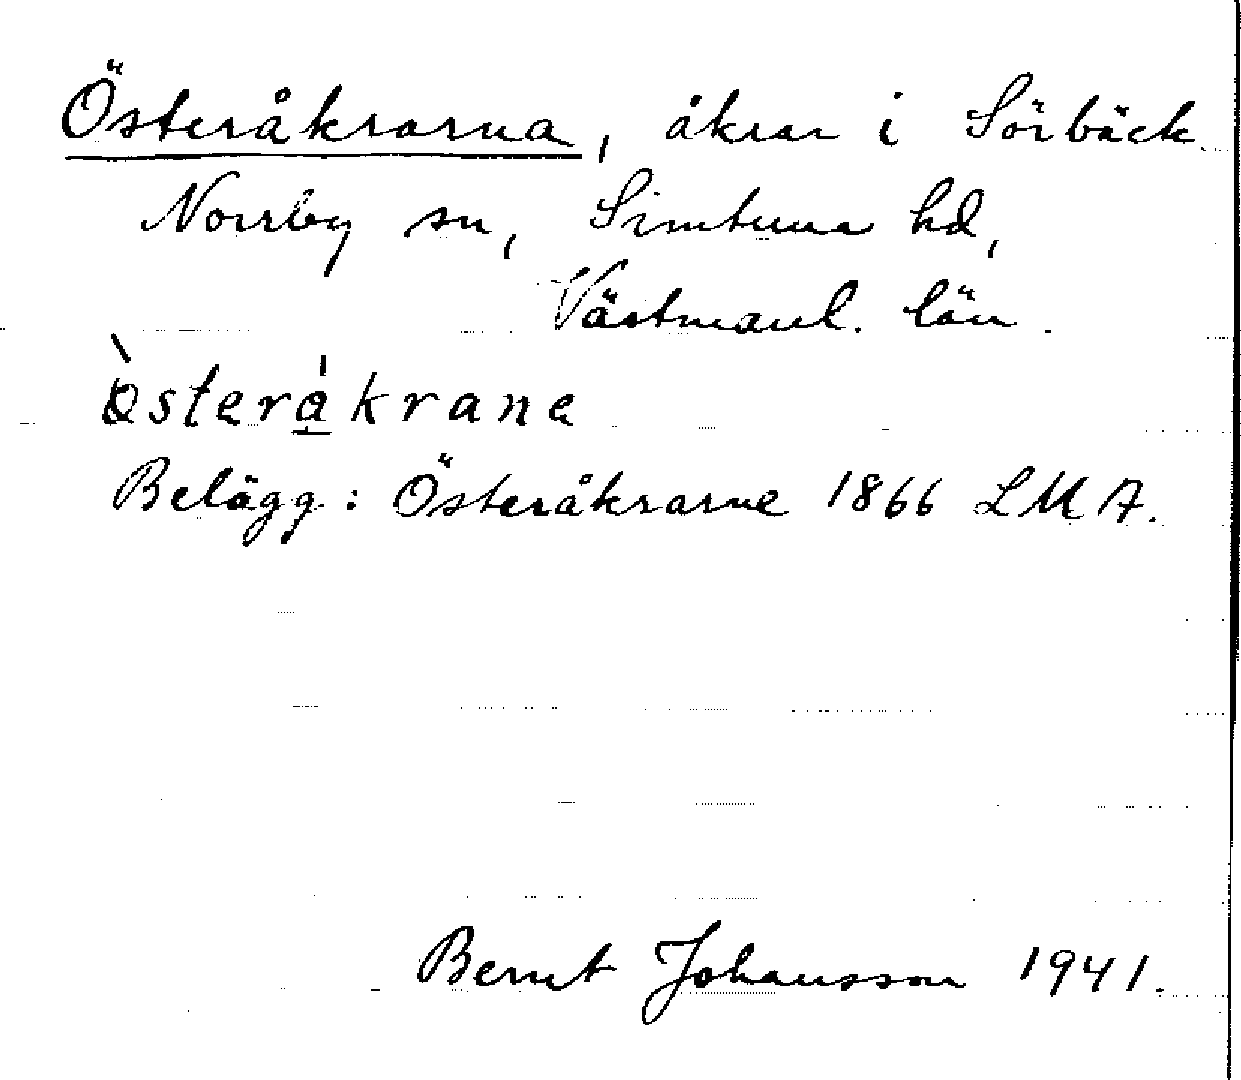 Österåkrarna, åkrar i Sörbäck
Norrby sn, Simtuna hd,
Västmanl. län.
òsterákrane
Belägg: Österåkrarne 1866 LMA.
Bernt Johansson 1941.